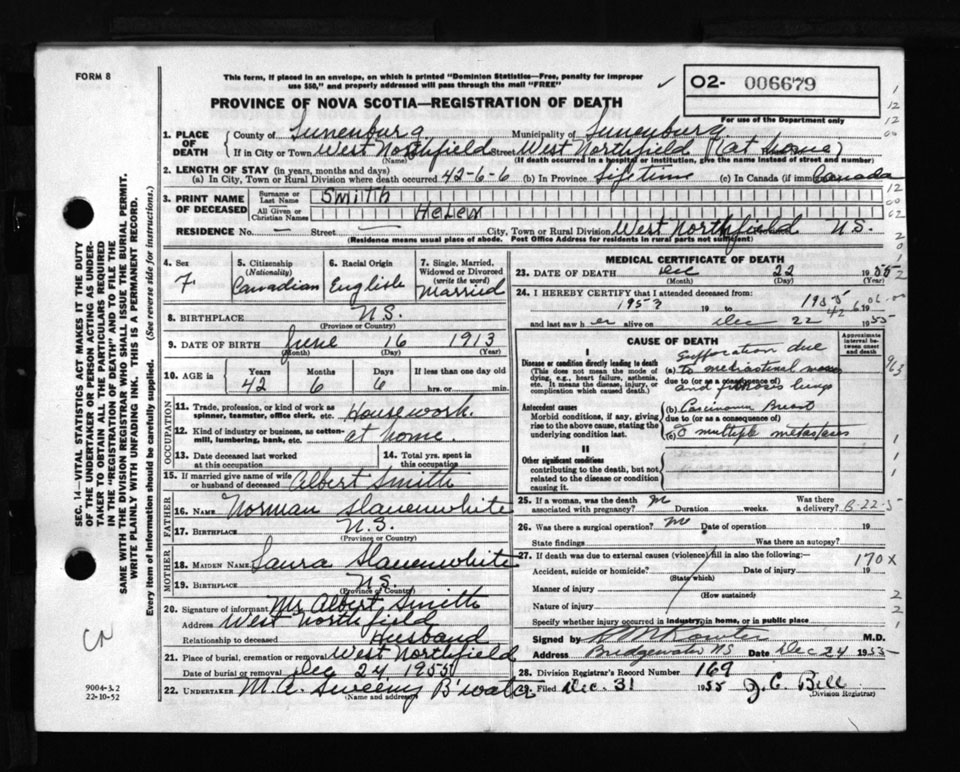 FORM 8
This form, if placed in an envelope, on which is printed "Dominion Statistics—Free, penalty for improper
use $50," and properly addressed will pass through the mail "FREE"
✓
O2- 006679
For use of the Department only
PROVINCE OF NOVA SCOTIA—REGISTRATION OF DEATH
1. PLACE OF DEATH
County of Lunenburg Municipality of Lunenburg
If in City or Town West Northfield Street West Northfield (at home)
(Name) (If death occurred in a hospital or institution, give the name instead of street and number)
2. LENGTH OF STAY (in years, months and days)
(a) In City, Town or Rural Division where death occurred 42-6-6 (b) In Province Lifetime (c) In Canada (if immigrant) Canada
3. PRINT NAME OF DECEASED
Surname or Last Name Smith
All Given or Christian Names Helen
RESIDENCE No. — Street — City, Town or Rural Division West Northfield N.S.
(Residence means usual place of abode. Post Office Address for residents in rural parts not sufficient)
4. Sex F
5. Citizenship (Nationality) Canadian
6. Racial Origin English
7. Single, Married, Widowed or Divorced (write the word) Married
8. BIRTHPLACE N.S.
(Province or Country)
9. DATE OF BIRTH June 16 1913
(Month) (Day) (Year)
10. AGE in Years Months Days If less than one day old
42 6 6 hrs. or min.
OCCUPATION
11. Trade, profession, or kind of work as spinner, teamster, office clerk, etc. Housework.
12. Kind of industry or business, as cotton-mill, lumbering, bank, etc. at home.
13. Date deceased last worked at this occupation
14. Total yrs. spent in this occupation
15. If married give name of wife or husband of deceased Albert Smith
FATHER
16. NAME Norman Slauenwhite
17. BIRTHPLACE N.S.
(Province or Country)
MOTHER
18. MAIDEN NAME Laura Slauenwhite
19. BIRTHPLACE N.S.
(Province or Country)
20. Signature of informant Mr Albert Smith
Address West Northfield
Relationship to deceased Husband
21. Place of burial, cremation or removal West Northfield
Date of burial or removal Dec 24 1955
22. UNDERTAKER M.A. Sweeny B'water
(Name and address)
MEDICAL CERTIFICATE OF DEATH
23. DATE OF DEATH Dec 22 1955
(Month) (Day) (Year)
24. I HEREBY CERTIFY that I attended deceased from:
1953 19 to 1955
and last saw her alive on Dec 22 1955
CAUSE OF DEATH
Approximate interval between onset and death
I
Disease or condition directly leading to death
(This does not mean the mode of dying, e.g., heart failure, asthenia, etc. It means the disease, injury, or complication which caused death.)
(a) Suffocation due to mediastinal mass
due to (or as a consequence of)
and fibrosis lungs
Antecedent causes
Morbid conditions, if any, giving rise to the above cause, stating the underlying condition last.
(b) Carcinoma Breast
due to (or as a consequence of)
(c) multiple metastases
II
Other significant conditions
contributing to the death, but not related to the disease or condition causing it.
25. If a woman, was the death associated with pregnancy? Duration weeks. Was there a delivery? B-22-5
26. Was there a surgical operation? Date of operation 19
State findings Was there an autopsy?
27. If death was due to external causes (violence) fill in also the following:—
Accident, suicide or homicide? Date of injury 19
(State which)
170X
Manner of injury
(How sustained)
Nature of injury
Specify whether injury occurred in industry, in home, or in public place
Signed by M.D.
Address Bridgewater NS Date Dec 24 1955
28. Division Registrar's Record Number 169
Filed Dec. 31 1955 J.C. Bell
(Division Registrar)
SEC. 14—VITAL STATISTICS ACT MAKES IT THE DUTY
OF THE UNDERTAKER OR PERSON ACTING AS UNDER-
TAKER TO OBTAIN ALL THE PARTICULARS REQUIRED
IN THE "REGISTRATION OF DEATH" AND TO FILE THE
SAME WITH THE DIVISION REGISTRAR WHO SHALL ISSUE THE BURIAL PERMIT.
WRITE PLAINLY WITH UNFADING INK. THIS IS A PERMANENT RECORD.
Every item of information should be carefully supplied. (See reverse side for instructions.)
9004-3.2
22-10-52